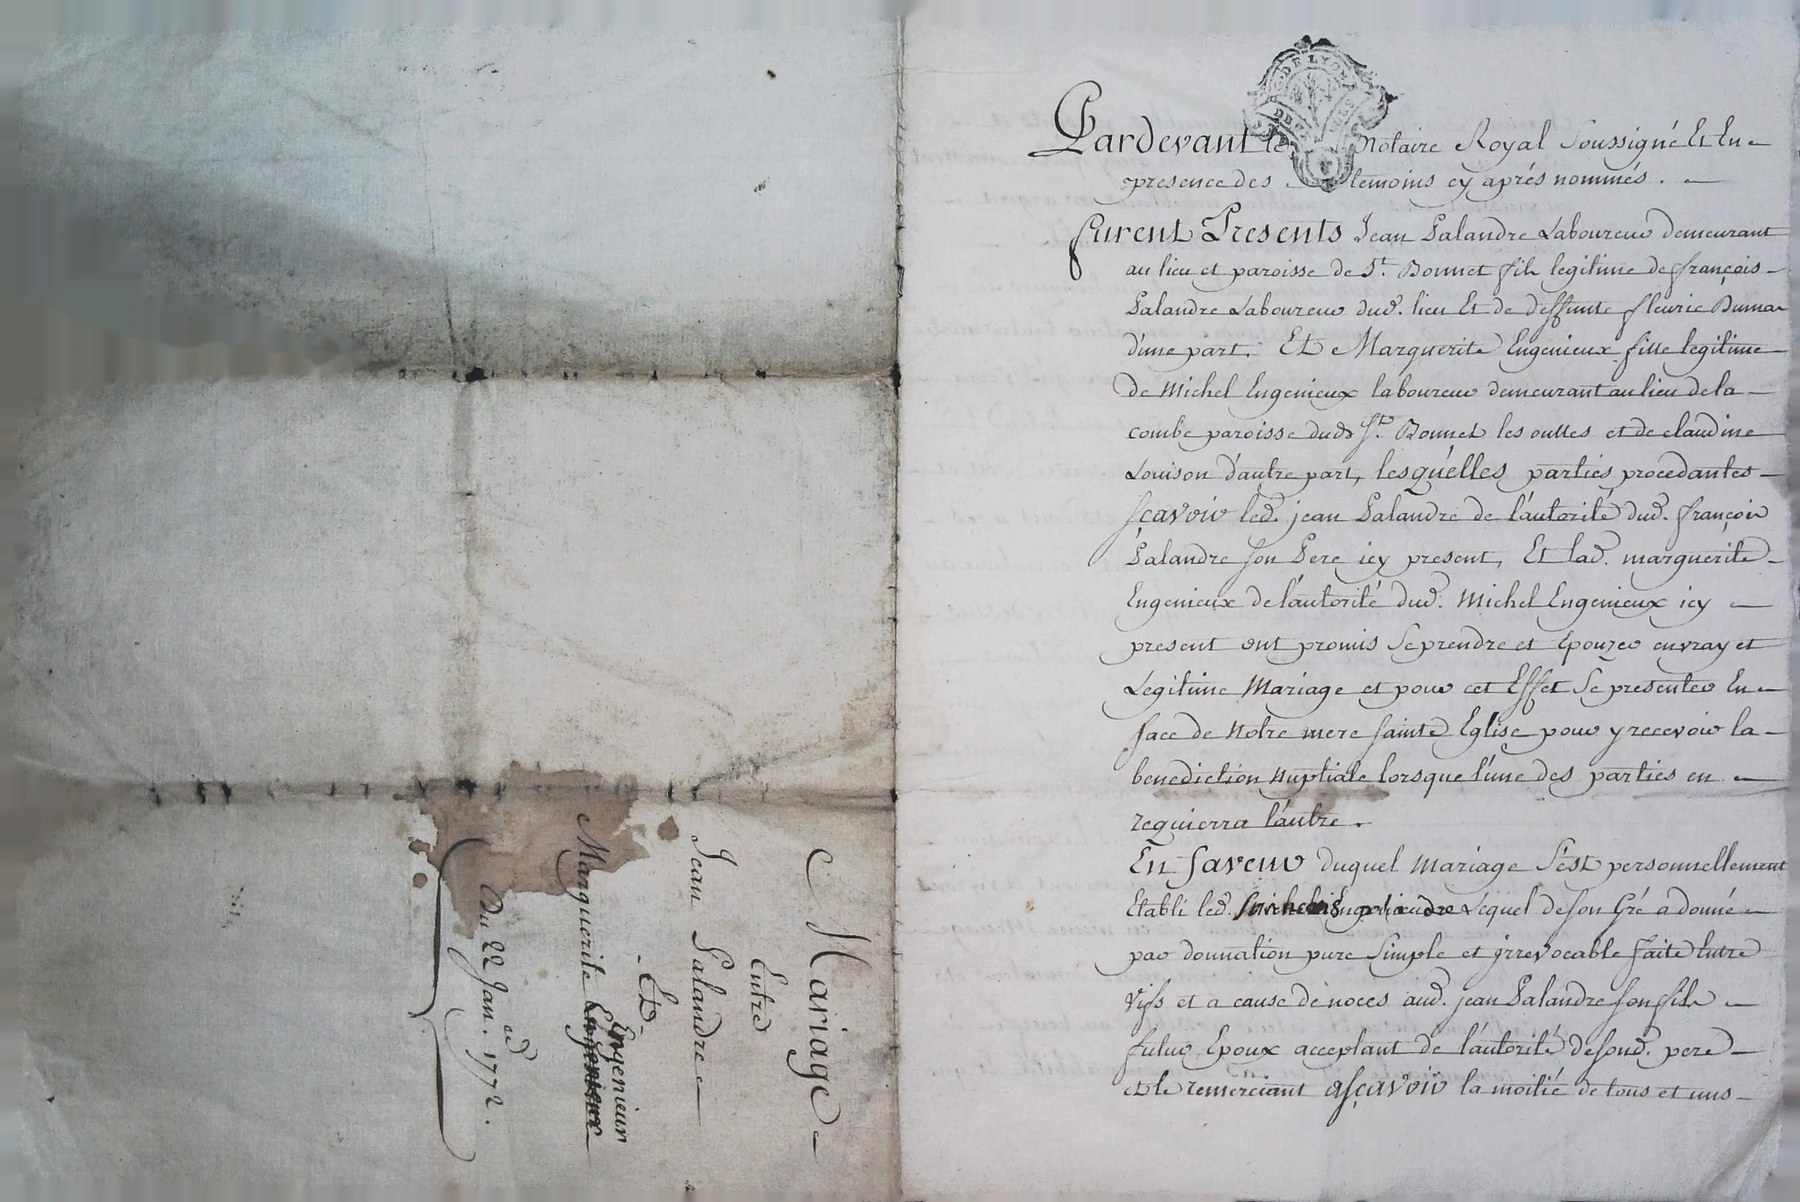 Mariage
Entre
Jean Palandre
Et
Marguerite Engenieux
Engenieur
Du 22 Jan. 1772.
DE LYON
Pardevant le Notaire Royal Soussigné Et En
presence des temoins cy aprés nommés.
furent Presents Jean Palandre Laboureur demeurant
au lieu et paroisse de St. Bonnet fils legitime de françois
Palandre Laboureur dud. lieu Et de deffunte fleurie Dumas
d'une part, Et Marguerite Engenieux fille legitime
de Michel Engenieux laboureur demeurant au lieu de la
combe paroisse dud. St. Bonnet les oulles et de claudine
Louison d'autre part, lesquelles parties procedantes
sçavoir led. jean Palandre de l'autorité dud. françois
Palandre son Pere icy present, Et lad. marguerite
Engenieux de l'autorité dud. Michel Engenieux icy
present ont promis se prendre et Epouzer en vray et
Legitime Mariage et pour cet Effet se presenter En
face de Notre mere sainte Eglise pour y recevoir la
benediction Nuptiale lorsque l'une des parties en
requierra l'autre.
En faveur duquel Mariage s'est personnellement
Etabli led. Lequel de son Gré a donné
par donnation pure Simple et jrrevocable faite Entre
Vifs et a cause de noces aud. jean Palandre son fils
futur Epoux acceptant de l'autorité de sond. pere
et le remerciant asçavoir la moitié de tous et uns